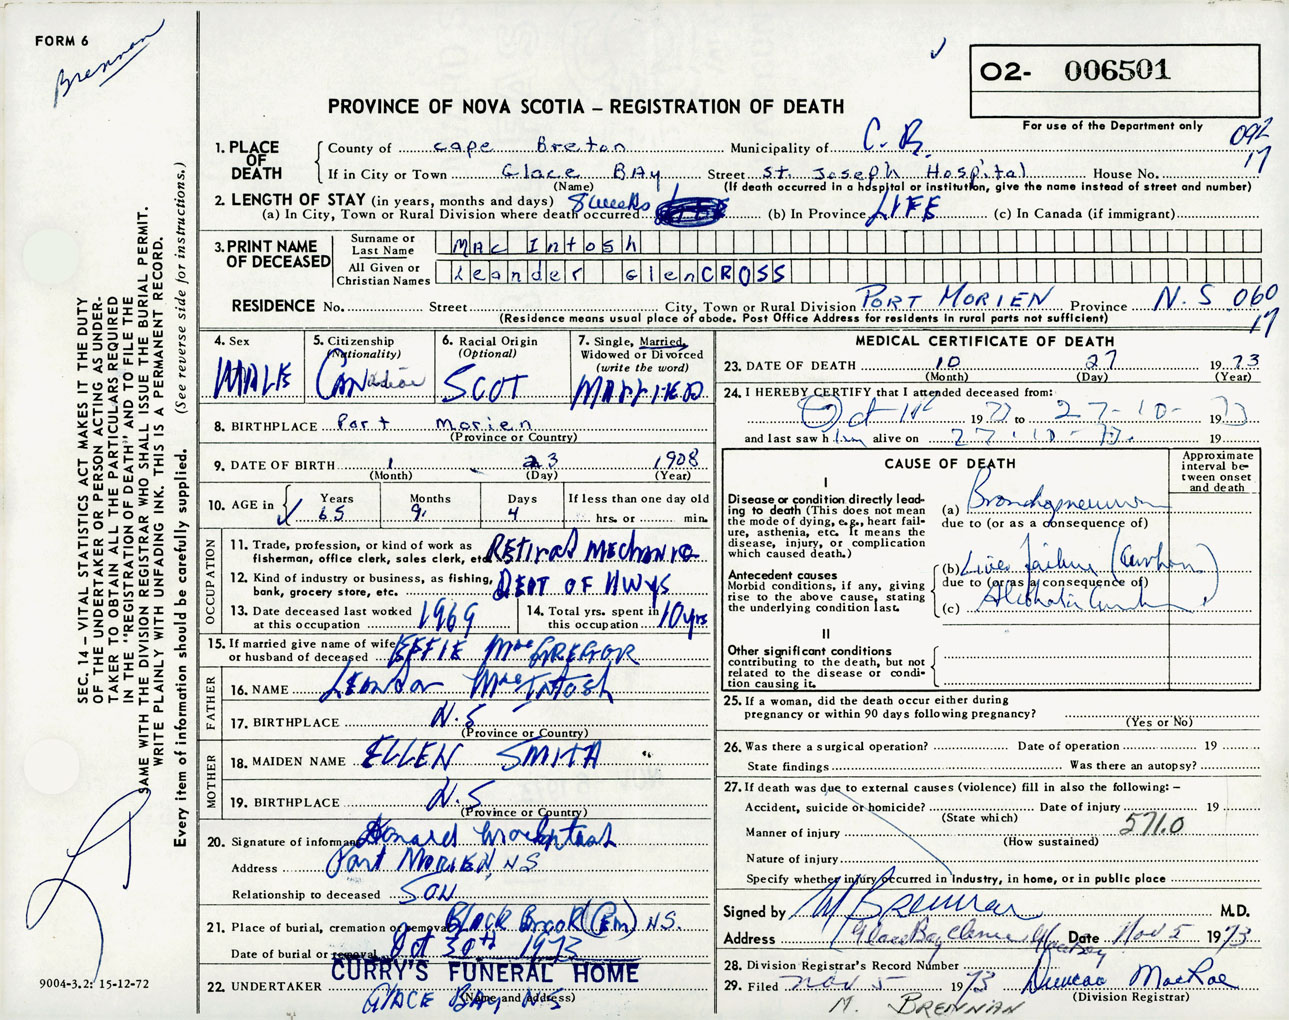 FORM 6
Brennan
O2- 006501
PROVINCE OF NOVA SCOTIA – REGISTRATION OF DEATH
For use of the Department only
092
17
1. PLACE OF DEATH
County of Cape Breton Municipality of C. B.
If in City or Town Glace BAy Street St. Joseph Hospital House No.
(Name) (If death occurred in a hospital or institution, give the name instead of street and number)
2. LENGTH OF STAY (in years, months and days)
(a) In City, Town or Rural Division where death occurred 8 weeks (b) In Province LIFE (c) In Canada (if immigrant)
3. PRINT NAME OF DECEASED
Surname or Last Name MAC Intosh
All Given or Christian Names Leander GlenCROSS
RESIDENCE No. Street City, Town or Rural Division PORT MORIEN Province N.S 060
17
(Residence means usual place of abode. Post Office Address for residents in rural parts not sufficient)
4. Sex MALE
5. Citizenship (Nationality) CANadian
6. Racial Origin (Optional) SCOT
7. Single, Married, Widowed or Divorced (write the word) MARRIED
8. BIRTHPLACE Port Morien
(Province or Country)
9. DATE OF BIRTH 1 23 1908
(Month) (Day) (Year)
10. AGE in Years 65 Months 9 Days 4 If less than one day old hrs. or min.
OCCUPATION
11. Trade, profession, or kind of work as fisherman, office clerk, sales clerk, etc. REtired MEchanic
12. Kind of industry or business, as fishing, bank, grocery store, etc. DEPT OF HWYS
13. Date deceased last worked at this occupation 1969
14. Total yrs. spent in this occupation 10 yrs
15. If married give name of wife or husband of deceased EFFIE MacGREGOR
FATHER
16. NAME LEANDOR MacINTOSH
17. BIRTHPLACE N.S
(Province or Country)
MOTHER
18. MAIDEN NAME ELLEN SMITH
19. BIRTHPLACE N.S
(Province or Country)
20. Signature of informant
Address Port MORIEN, NS
Relationship to deceased SON
21. Place of burial, cremation or removal Black Brook (Cem) N.S.
Date of burial or removal Oct 30th 1973
CURRY'S FUNERAL HOME
22. UNDERTAKER GLACE BAY NS
(Name and address)
MEDICAL CERTIFICATE OF DEATH
23. DATE OF DEATH 10 27 1973
(Month) (Day) (Year)
24. I HEREBY CERTIFY that I attended deceased from:
Oct 1973 to 27-10- 1973
and last saw him alive on 27-10-73. 19
CAUSE OF DEATH
Approximate interval between onset and death
I
Disease or condition directly leading to death (This does not mean the mode of dying, e.g., heart failure, asthenia, etc. It means the disease, injury, or complication which caused death.)
(a) Bronchopneumonia
due to (or as a consequence of)
Antecedent causes
Morbid conditions, if any, giving rise to the above cause, stating the underlying condition last.
(b) Liver failure (Cirrhosis)
due to (or as a consequence of)
(c) Alcoholic Cirrhosis
II
Other significant conditions
contributing to the death, but not related to the disease or condition causing it.
25. If a woman, did the death occur either during pregnancy or within 90 days following pregnancy?
(Yes or No)
26. Was there a surgical operation? Date of operation 19
State findings Was there an autopsy?
27. If death was due to external causes (violence) fill in also the following: –
Accident, suicide or homicide? Date of injury 19
(State which)
Manner of injury 571.0
(How sustained)
Nature of injury
Specify whether injury occurred in industry, in home, or in public place
Signed by M Brennan M.D.
Address Glace Bay Date Nov 5 1973
28. Division Registrar's Record Number
29. Filed Nov 5 1973 Duncan MacRae
(Division Registrar)
M. BRENNAN
SEC. 14 – VITAL STATISTICS ACT MAKES IT THE DUTY
OF THE UNDERTAKER OR PERSON ACTING AS UNDER-
TAKER TO OBTAIN ALL THE PARTICULARS REQUIRED
IN THE "REGISTRATION OF DEATH" AND TO FILE THE
SAME WITH THE DIVISION REGISTRAR WHO SHALL ISSUE THE BURIAL PERMIT.
WRITE PLAINLY WITH UNFADING INK. THIS IS A PERMANENT RECORD.
Every item of information should be carefully supplied. (See reverse side for instructions.)
9004-3.2: 15-12-72